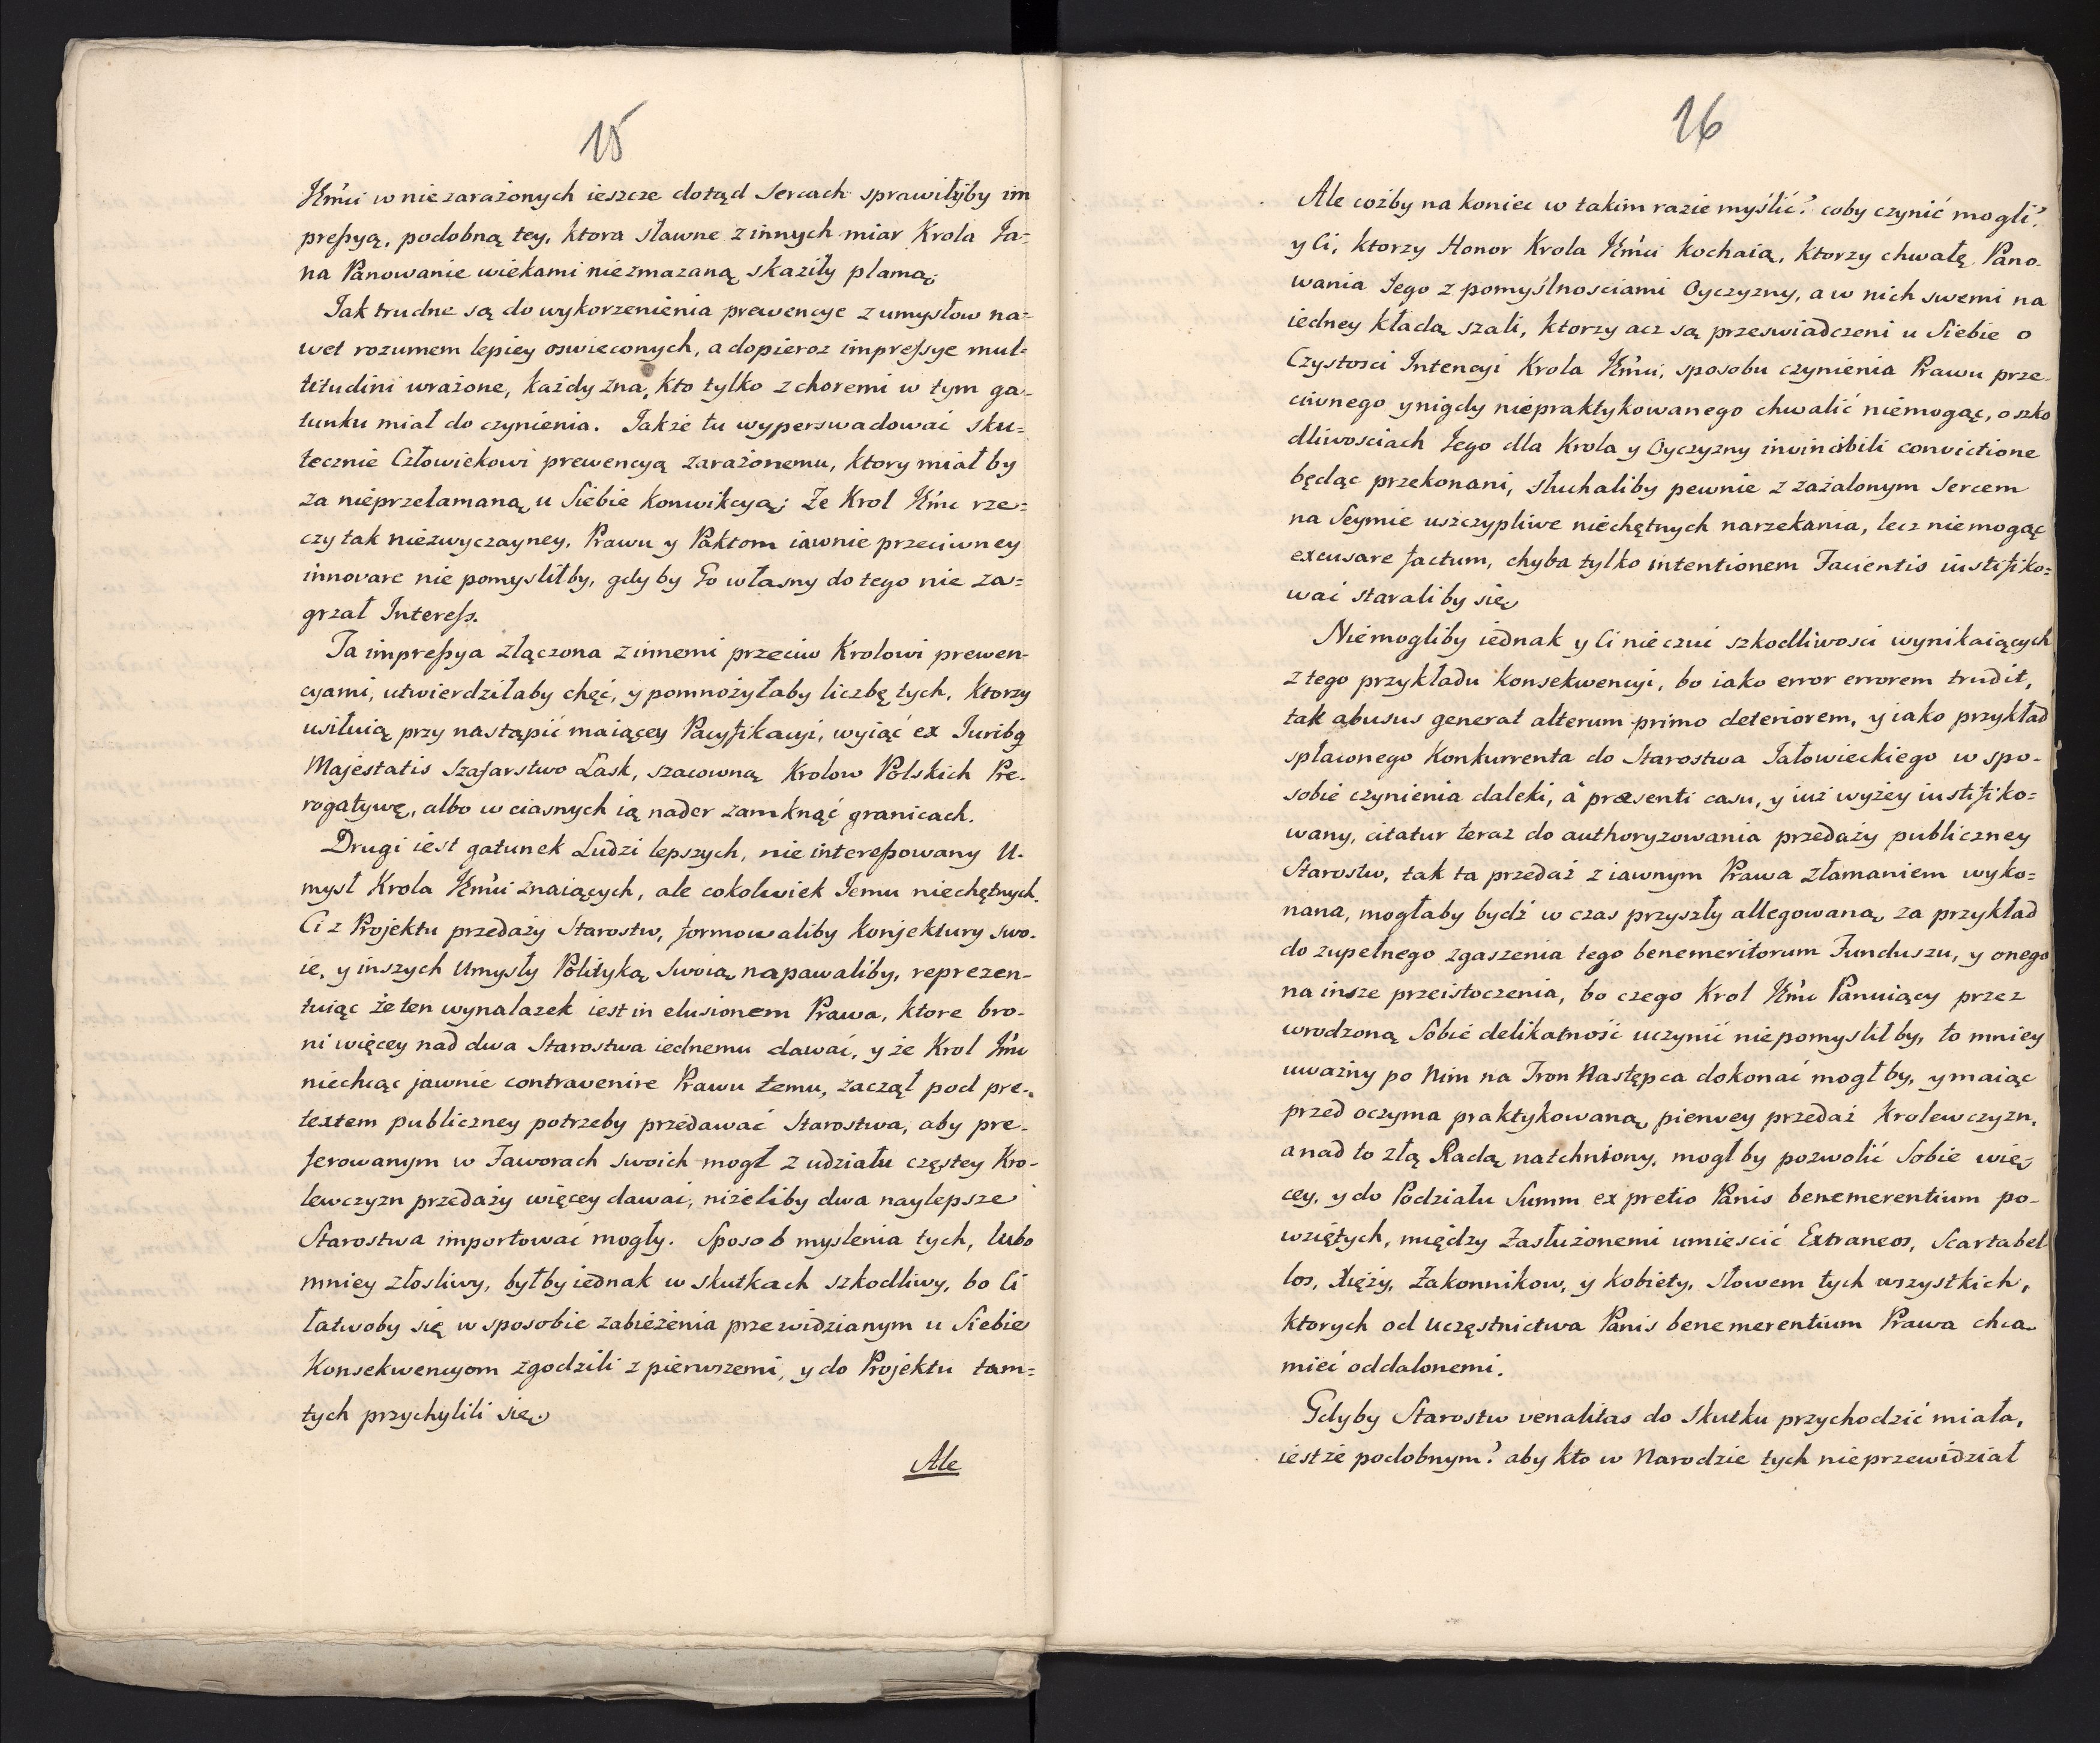 15
JKm̃ci w niezarażonych ieszcze dotąd Sercach sprawiłyby im
preſsyą, podobną tey, ktora sławne z innych miar Krola Ja=
na Panowanie wiekami niezmazaną skaziły plamą.
Jak trudne są do wykorzenienia prewencye z umysłow na=
wet rozumem lepiey oswieconych, a dopieroz impreſsye mul=
titudini wrażone, każdy zna, kto tylko z choremi w tym ga=
tunku miał do czynienia. Jakże tu wyperswadować sku=
tecznie Człowiekowi prewencyą zarażonemu, ktory miałby
za nieprzełamaną u Siebie konwikcyą; Ze Krol JKm̃c rze=
czy tak niezwyczayney, Prawu y Paktom iawnie przeciwney
innovare nie pomysliłby, gdyby Go własny do tego nie za=
grzał Intereſs.
Ta impreſsya złączona z innemi przeciw Krolowi prewen=
cyami, utwierdziłaby chęć, y pomnożyłaby liczbę tych, ktorzy
usiłuią przy nastąpić maiącey Pacyfikacyi, wyiąć ex Juribq
Majestatis Szafarstwo Łask, szacowną Krolow Polskich Pre=
rogatywę, albo w ciasnych ią nader zamknąć granicach.
Drugi iest gatunek Ludzi lepszych, nie intereſsowany U=
mysł Krola JKm̃ci znaiących, ale cokolwiek Jemu niechętnych.
Ci z Projektu przedaży Starostw, formowaliby konjektury swo=
ie, y inszych Umysły Polityką Swoią napawaliby, reprezen=
tuiąc że ten wynalazek iest in elusionem Prawa, ktore bro=
ni więcey nad dwa Starostwa iednemu dawać, y że Krol Jm̃c
niechcąc jawnie contravenire Prawu temu, zaczął pod pre=
textem publiczney potrzeby przedawać Starostwa, aby pre=
ferowanym w Faworach swoich mogł z udziału częstey Kro=
lewczyzn przedaży więcey dawać, niżeliby dwa naylepsze
Starostwa importować mogły. Sposob myslenia tych, lubo
mniey złosliwy, byłby iednak w skutkach szkodliwy, bo Ci
łatwoby się w sposobie zabieżenia przewidzianym u Siebie
Konsekwencyom zgodzili z pierwszemi, y do Projektu tam=
tych przychylili się.
Ale
16
Ale cożby na koniec w takim razie myślić? coby czynić mogli?
y Ci, ktorzy Honor Krola JKm̃ci kochaią, ktorzy chwałę Pano=
wania Jego z pomyślnosciami Oyczyzny, a w nich swemi na
iedney kładą szali, ktorzy acz są przeswiadczeni u Siebie o
Czystosci Intencyi Krola JKm̃ci, sposobu czynienia Prawu prze=
ciwnego y nigdy niepraktykowanego chwalić niemogąc, o szko
dliwosciach Jego dla Krola y Oyczyzny invincibili convictione
będąc przekonani, słuchaliby pewnie z zażalonym Sercem
na Seymie uszczypliwe niechętnych narzekania, lecz niemogąc
excusare factum, chyba tylko intentionem Facientis iustifiko=
wać staraliby się.
Niemogliby iednak y Ci nie czuć szkodliwosci wynikaiących
z tego przykładu konsekwencyi, bo iako error errorem trudit,
tak abusus generat alterum primo deteriorem, y iako przykład
spłaconego Konkurrenta do Starostwa Jałowieckiego w spo=
sobie czynienia daleki, à præsenti casu, y iuż wyżey iustifiko=
wany, citatur teraz do authoryzowania przedaży publiczney
Starostw, tak ta przedaż z iawnym Prawa złamaniem wyko=
nana, mogłaby bydź w czas przyszły allegowaną za przykład
do zupełnego zgaszenia tego benemeritorum Funduszu, y onego
na insze przeistoczenia, bo czego Krol JKm̃c Panuiący przez
wrodzoną Sobie delikatność uczynić niepomysliłby, to mniey
uważny po Nim na Tron Następca dokonać mogłby, y maiąc
przed oczyma praktykowaną pierwey przedaż Krolewczyzn,
a nad to złą Radą natchniony, mogłby pozwolić Sobie wię=
cey, y do Podziału Summ ex pretio Panis benemerentium po=
wziętych, między Zasłużonemi umiescić Extraneos, Scartabel
los, Xięży, Zakonnikow, y kobiety, słowem tych wszystkich,
ktorych od Uczęstnictwa Panis benemerentium Prawa chcą
mieć oddalonemi.
Gdyby Starostw venalitas do skutku przychodzić miała,
iestże podobnym? aby kto w Narodzie tych nieprzewidział